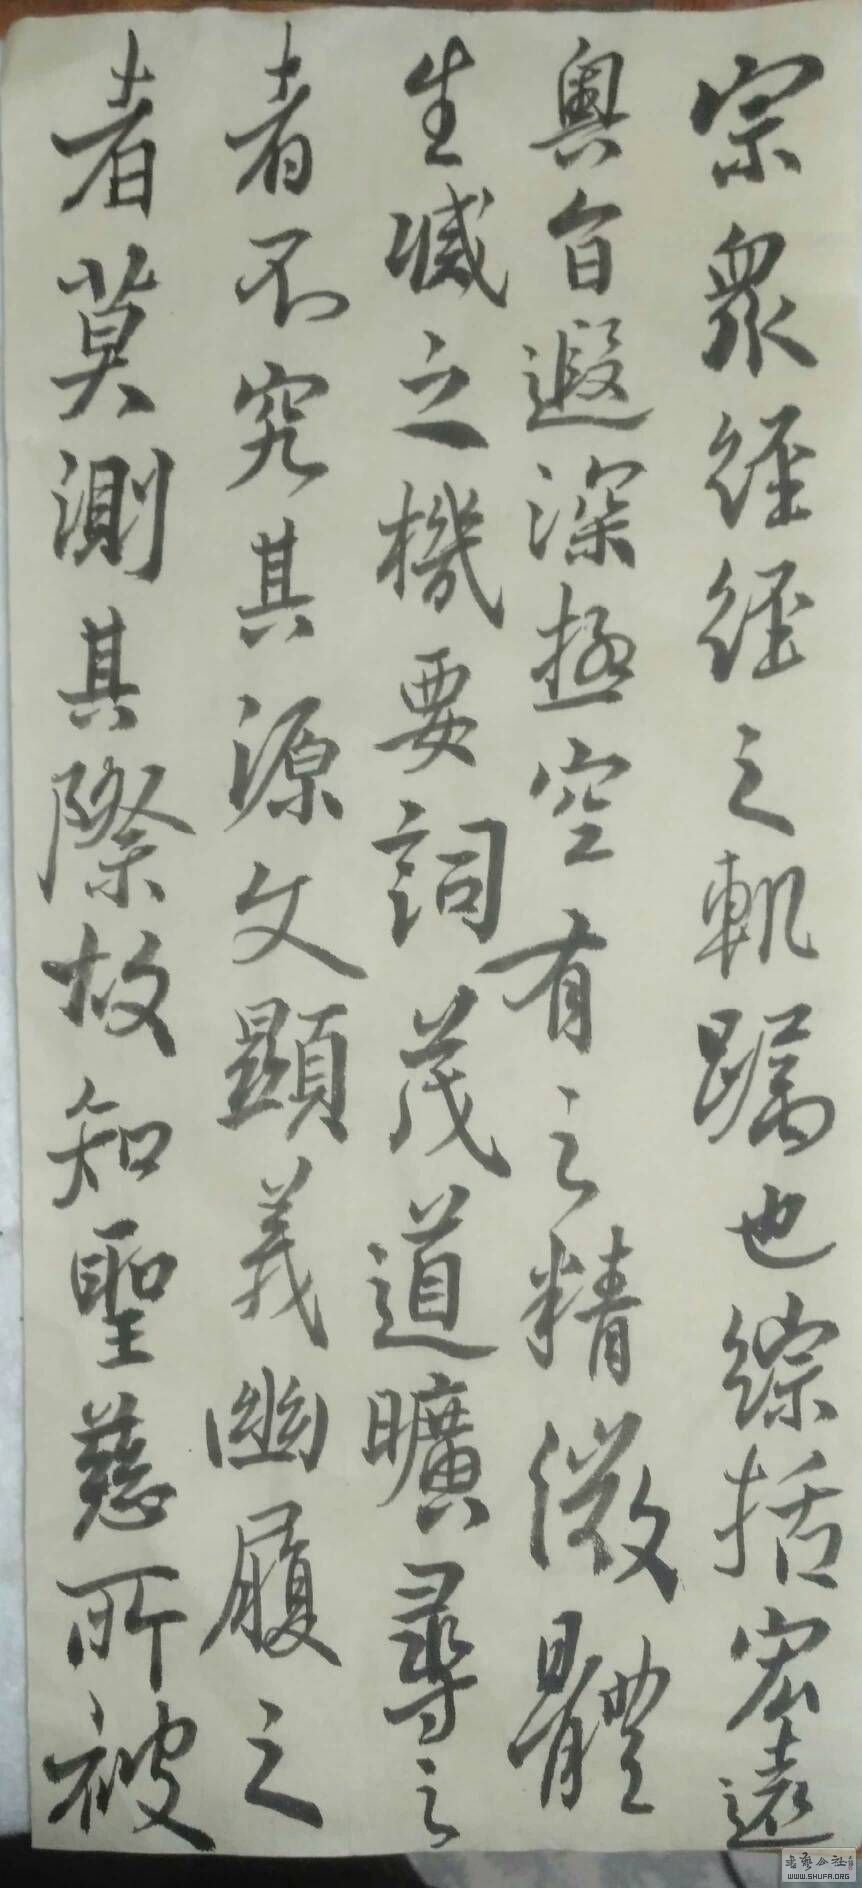 宗衆經經之軌躅也綜括宏遠
奧旨遐深極空有之精微體
生滅之機要詞茂道曠尋之
者不究其源文顯義幽履之
者莫測其際故知聖慈所被
书艺公社
WWW.SHUFA.ORG